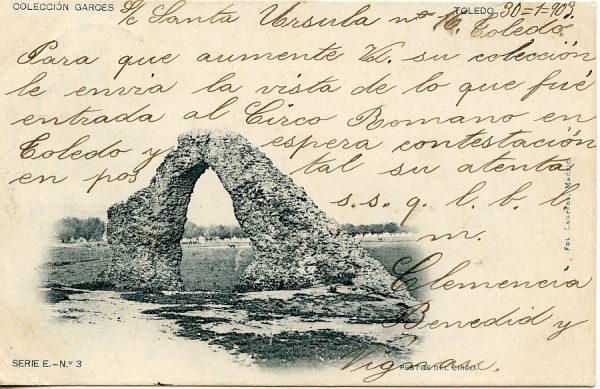 COLECCIÓN GARCÉS
TOLEDO 30-1-903.
S/c Santa Ursula nº Toledo
Para que aumente V. su colección
le envia la vista de lo que fué
entrada al Circo Romano en
Toledo y espera contestación
en pos tal su atenta
s. s. q. l. b. l.
m.
Clemencia
Benedid y
SERIE E.-N.º 3
RESTOS DEL CIRCO.
Fot. Laurent. Madrid